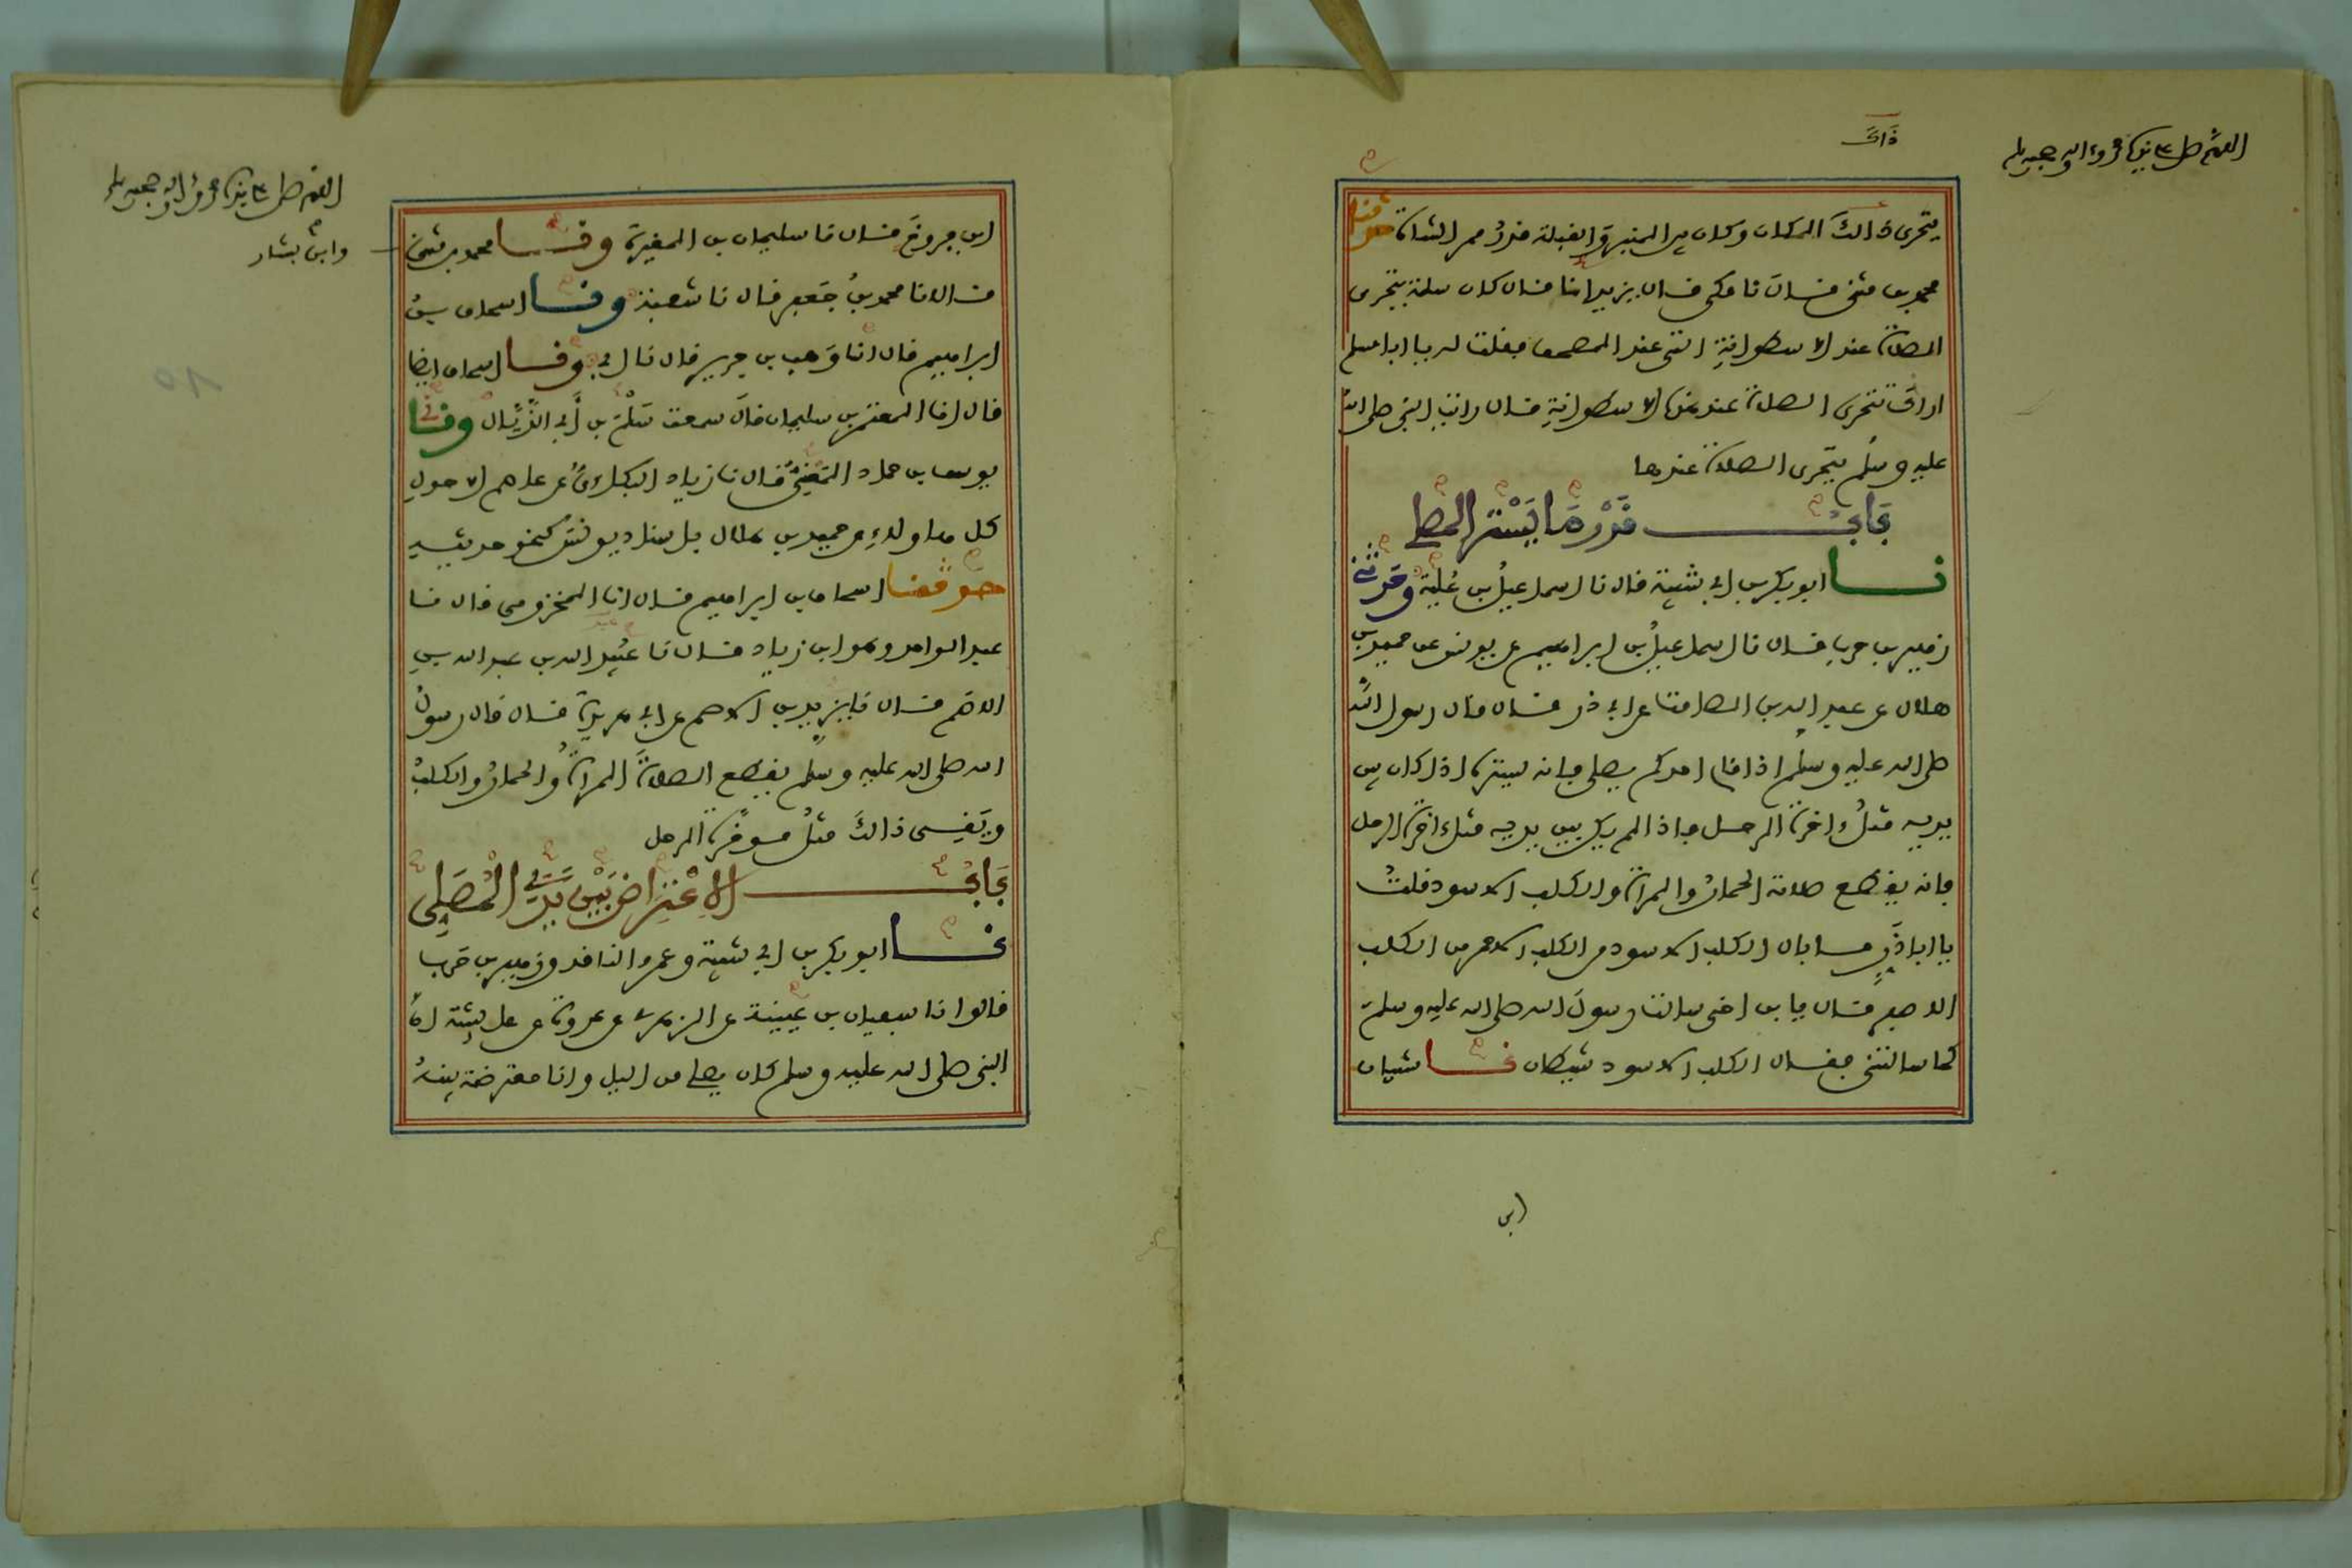 اللهم صل على سيدنا محمد وءاله وصحبه وسلم
ذَاكَ
يتحرى ذالكَ المكان وكان بين المنبر والقبلة قدرُ ممر الشاة حدثنا
محمد بن مثنى قال نا مكي قال يزيد انا قال كان سلمة يتحرى
الصلاة عند الاسطوانةِ التي عند المصحف فقلت له يا ابا مسلم
اراك تتحرى الصلاة عند هذه الاسطوانةِ قال رايت النبي صلى الله
عليه وسلم يتحرى الصلاة عندها
بَابُ قَدْرِ مَا يَسْتر المصلي
نا ابو بكر بن ابي شيبة قال نا اسماعيلُ بن عُلية وحدثني
زهير بن حرب قال نا اسماعيلُ بن ابراهيم عن يونس عن حميد بن
هلال عن عبد الله بن الصامت عن ابي ذر قال قال رسول الله
صلى الله عليه وسلم اذا قام احدكم يصلي فإنه يستره اذا كان بين
يديه مثلُ ءاخرة الرحل فإذا لم يكن بين يديه مثل ءاخرة الرحل
فإنه يقطع صلاته الحمارُ والمرأة والكلب الاسود قلتُ
يا ابا ذَرٍّ ما بال الكلب الاسود من الكلب الاحمر من الكلب
الاصفر قال يا بن اخي سالت رسولَ الله صلى الله عليه وسلم
كما سالتني فقال الكلب الاسود شيطان نا شيبان
ابن
اللهم صل على سيدنا محمد وءاله وصحبه وسلم
وابنُ بشار
ابن فروخَ قال نا سليمان بن المغيرة ونا محمد بن مثنى
قالا نا محمد بنُ جَعفر قال نا شعبة ونا اسحاق بنُ
ابراهيم قال انا وَهب بن جرير قال نا ابي ونا اسحاق ايضا
قال انا المعتمر بن سليمان قالَ سمعت سَلْمَ بن أَبي الذَّيَّال وني
يوسف بن حماد المَعْنِيُّ قال نا زياد البكاءيُّ عن عاصم الاحولِ
كل هاولاءِ عن حميد بن هلال بإسناد يونسَ كنحو حديثه
حدثنا اسحاق بن ابراهيم قال انا المخزومي قال نا
عبد الواحد وهو ابن زياد قال نا عُبيد الله بن عبد الله بنِ
الاصَم قال نا يزيد بن الاصم عن ابي هريرة قال قال رسولُ
الله صلى الله عليه وسلم يقطع الصلاةَ المرأةُ والحمارُ والكلبُ
ويَقِي ذالكَ مثلُ موخرة الرحل
بَابُ الاِعْتِرَاضِ بَيْنَ يَدَيِ الْمُصَلِّي
نا ابو بكر بن ابي شيبة وعمرو الناقد وزهير بن حَرب
قالوا نا سفيان بن عُيينة عن الزهري عن عروة عن عائشة انَّ
النبي صلى الله عليه وسلم كان يصلي من اليل وانا معترضة بينهُ